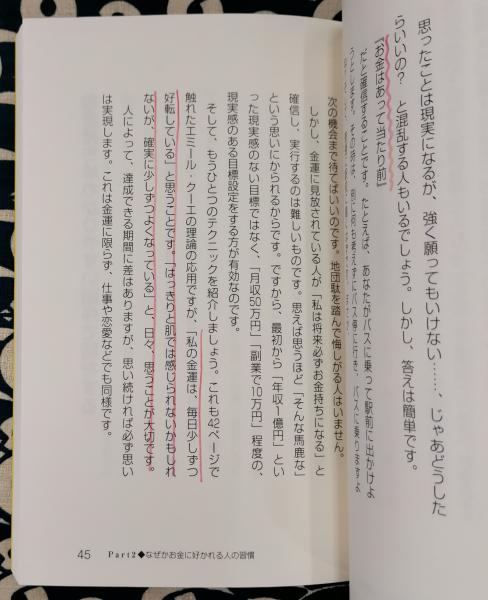 思ったことは現実になるが、強く願ってもいけない……、じゃあどうした
らいいの？　と混乱する人もいるでしょう。しかし、答えは簡単です。
『お金はあって当たり前』
だと確信することです。たとえば、あなたがバスに乗って駅前に出かけよ
うとします。その時は、別に何も考えずにバス停に行き、バスに乗りますよ
次の機会まで待てばいいのです。地団駄を踏んで悔しがる人はいません。
しかし、金運に見放されている人が「私は将来必ずお金持ちになる」と
確信し、実行するのは難しいものです。思えば思うほど「そんな馬鹿な」
という思いにかられるからです。ですから、最初から「年収1億円」とい
った現実感のない目標ではなく、「月収50万円」「副業で10万円」程度の、
現実感のある目標設定をする方が有効なのです。
そして、もうひとつのテクニックを紹介しましょう。これも42ページで
触れたエミール・クーエの理論の応用ですが、「私の金運は、毎日少しずつ
好転している」と思うことです。「はっきりと肌では感じられないかもしれ
ないが、確実に少しずつよくなっている」と、日々、思うことが大切です。
人によって、達成できる期間に差はありますが、思い続ければ必ず思い
は実現します。これは金運に限らず、仕事や恋愛などでも同様です。
45 Part2◆なぜかお金に好かれる人の習慣